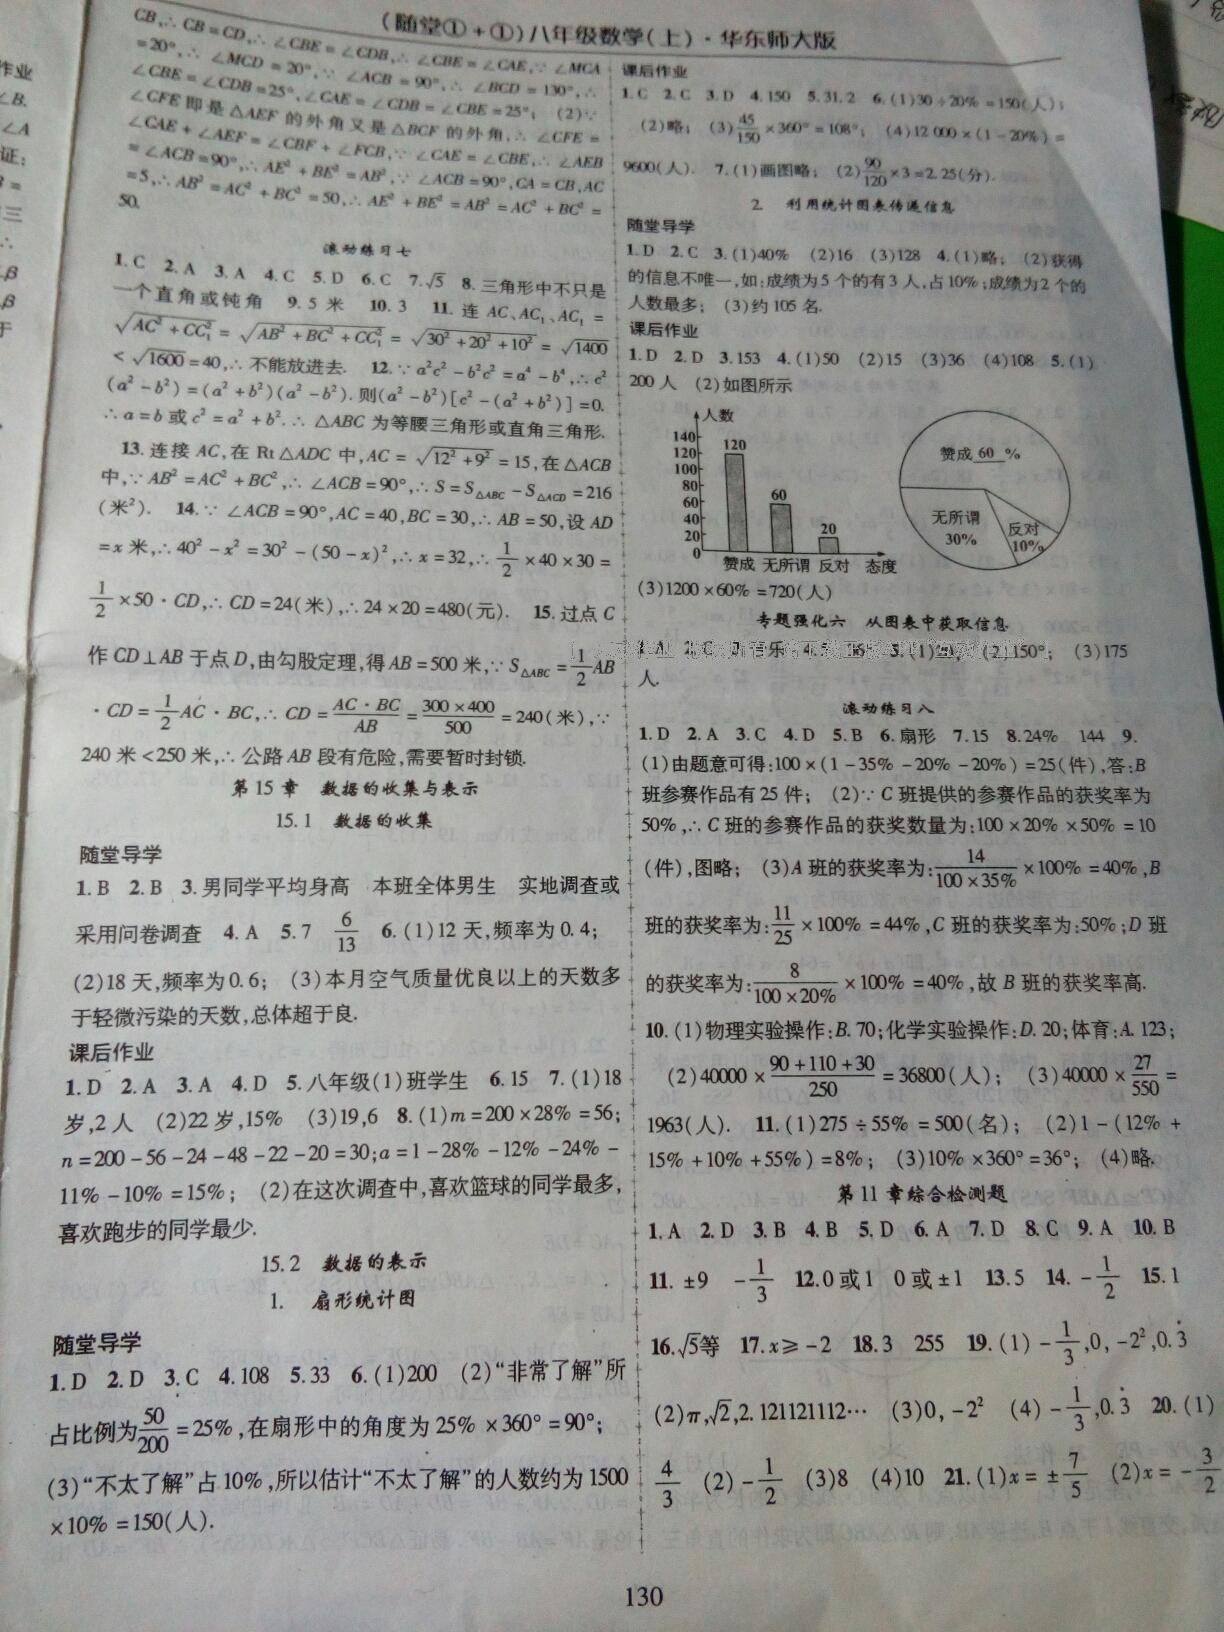 (随堂①+①)八年级数学(上)·华东师大版
CB,∴CB=CD,∴∠CBE=∠CDB,∴∠CBE=∠CAE,∵∠MCA
=20°,∴∠MCD=20°,∵∠ACB=90°,∴∠BCD=130°,∴
∠CBE=∠CDB=25°,∠CAE=∠CDB=∠CBE=25°; (2)∵
∠CFE即是△AEF的外角又是△BCF的外角,∴∠CFE=
∠CAE+∠AEF=∠CBF+∠FCB,∵∠CAE=∠CBE,∴∠AEB
=∠ACB=90°,∴AE²+BE²=AB²,∵∠ACB=90°,CA=CB,AC
=5,∴AB²=AC²+BC²=50,∴AE²+BE²=AB²=AC²+BC²=
50.
滚动练习七
1.C 2.A 3.A 4.C 5.D 6.C 7.√5 8.三角形中不只是
一个直角或钝角 9.5米 10.3 11.连AC、AC₁、AC₁=
√(AC²+CC₁²)=√(AB²+BC²+CC₁²)=√(30²+20²+10²)=√1400
<√1600=40,∴不能放进去. 12.∵a²c²-b²c²=a⁴-b⁴,∴c²
(a²-b²)=(a²+b²)(a²-b²).则(a²-b²)[c²-(a²+b²)]=0.
∴a=b或c²=a²+b².∴△ABC为等腰三角形或直角三角形.
13.连接AC,在Rt△ADC中,AC=√(12²+9²)=15,在△ACB
中,∵AB²=AC²+BC²,∴∠ACB=90°,∴S=S△ABC-S△ACD=216
(米²). 14.∵∠ACB=90°,AC=40,BC=30,∴AB=50,设AD
=x米,∴40²-x²=30²-(50-x)²,∴x=32,∴1/2×40×30=
1/2×50·CD,∴CD=24(米),∴24×20=480(元). 15.过点C
作CD⊥AB于点D,由勾股定理,得AB=500米,∵S△ABC=1/2AB
·CD=1/2AC·BC,∴CD=AC·BC/AB=300×400/500=240(米),∵
240米<250米,∴公路AB段有危险,需要暂时封锁.
第15章 数据的收集与表示
15.1 数据的收集
随堂导学
1.B 2.B 3.男同学平均身高 本班全体男生 实地调查或
采用问卷调查 4.A 5.7 6/13 6.(1)12天,频率为0.4;
(2)18天,频率为0.6; (3)本月空气质量优良以上的天数多
于轻微污染的天数,总体超于良.
课后作业
1.D 2.A 3.A 4.D 5.八年级(1)班学生 6.15 7.(1)18
岁,2人 (2)22岁,15% (3)19,6 8.(1)m=200×28%=56;
n=200-56-24-48-22-20=30;a=1-28%-12%-24%-
11%-10%=15%; (2)在这次调查中,喜欢篮球的同学最多,
喜欢跑步的同学最少.
15.2 数据的表示
1. 扇形统计图
随堂导学
1.D 2.D 3.C 4.108 5.33 6.(1)200 (2)“非常了解”所
占比例为50/200=25%,在扇形中的角度为25%×360°=90°;
(3)“不太了解”占10%,所以估计“不太了解”的人数约为1500
×10%=150(人).
课后作业
1.C 2.C 3.D 4.150 5.31.2 6.(1)30÷20%=150(人);
(2)略; (3)45/150×360°=108°; (4)12 000×(1-20%)=
9600(人). 7.(1)画图略; (2)90/120×3=2.25(分).
2. 利用统计图表传递信息
随堂导学
1.D 2.C 3.(1)40% (2)16 (3)128 4.(1)略; (2)获得
的信息不唯一,如:成绩为5个的有3人,占10%;成绩为2个的
人数最多; (3)约105名.
课后作业
1.D 2.D 3.153 4.(1)50 (2)15 (3)36 (4)108 5.(1)
200人 (2)如图所示
人数
140
120
100
80
60
40
20
0
120
60
20
赞成 无所谓 反对 态度
赞成 60 %
无所谓
30%
反对
10%
(3)1200×60%=720(人)
专题强化六 从图表中获取信息
(3)175
人.
滚动练习八
1.D 2.A 3.C 4.D 5.B 6.扇形 7.15 8.24% 144 9.
(1)由题意可得:100×(1-35%-20%-20%)=25(件),答:B
班参赛作品有25件; (2)∵C班提供的参赛作品的获奖率为
50%,∴C班的参赛作品的获奖数量为:100×20%×50%=10
(件),图略; (3)A班的获奖率为:14/(100×35%)×100%=40%,B
班的获奖率为:11/25×100%=44%,C班的获奖率为:50%;D班
的获奖率为:8/(100×20%)×100%=40%,故B班的获奖率高.
10.(1)物理实验操作:B.70;化学实验操作:D.20;体育:A.123;
(2)40000×(90+110+30)/250=36800(人); (3)40000×27/550=
1963(人). 11.(1)275÷55%=500(名); (2)1-(12%+
15%+10%+55%)=8%; (3)10%×360°=36°; (4)略.
第11章综合检测题
1.A 2.D 3.B 4.B 5.D 6.A 7.D 8.C 9.A 10.B
11.±9 -1/3 12.0或1 0或±1 13.5 14.-1/2 15.1
16.√5等 17.x≥-2 18.3 255 19.(1)-1/3,0,-2²,0.3̇
(2)π,√2,2.121121112… (3)0,-2² (4)-1/3,0.3̇ 20.(1)
4/3 (2)-1/2 (3)8 (4)10 21.(1)x=±7/5 (2)x=-3/2
130